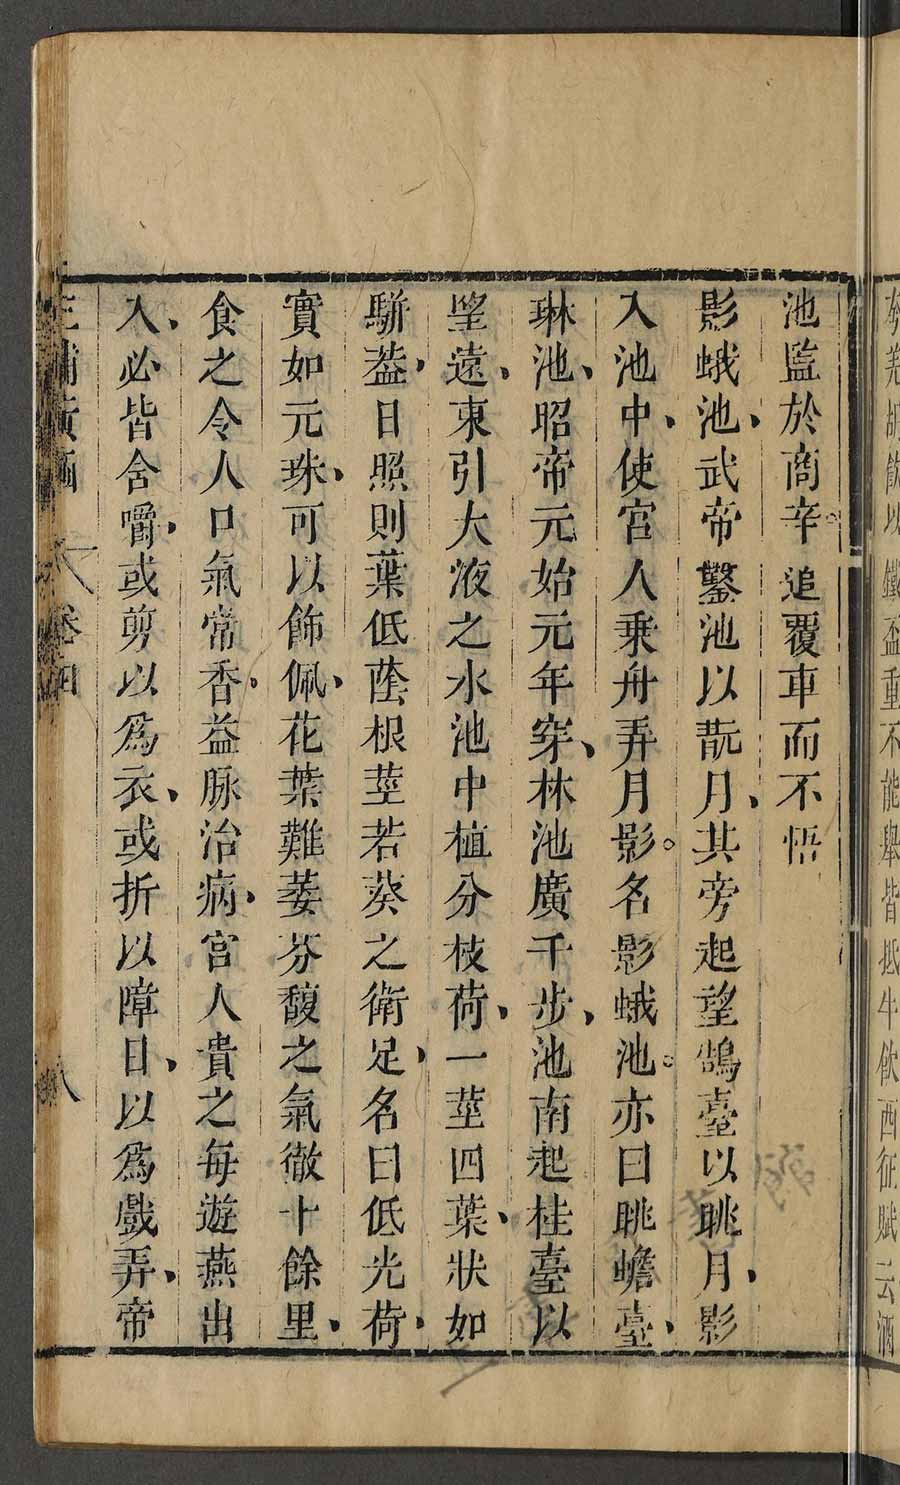 夯羌胡飲以鐵盃重不能舉皆抵牛飲西征賦云酒
池監於商辛追覆車而不悟
影蛾池武帝鑿池以翫月其旁起望鵠臺以眺月影
入池中使宮人乗舟弄月影名影蛾池亦曰眺蟾臺
琳池昭帝元始元年穿林池廣千步池南起桂臺以
望遠東引大液之水池中植分枝荷一莖四葉狀如
駢葢日照則葉低蔭根莖若葵之衛足名曰低光荷
實如元珠可以飾佩花葉難萎芬馥之氣徹十餘里
食之令人口氣常香益脉治病宮人貴之每遊燕出
入必皆含嚼或剪以爲衣或折以障日以爲戲弄帝
三輔黃圖 卷四 八